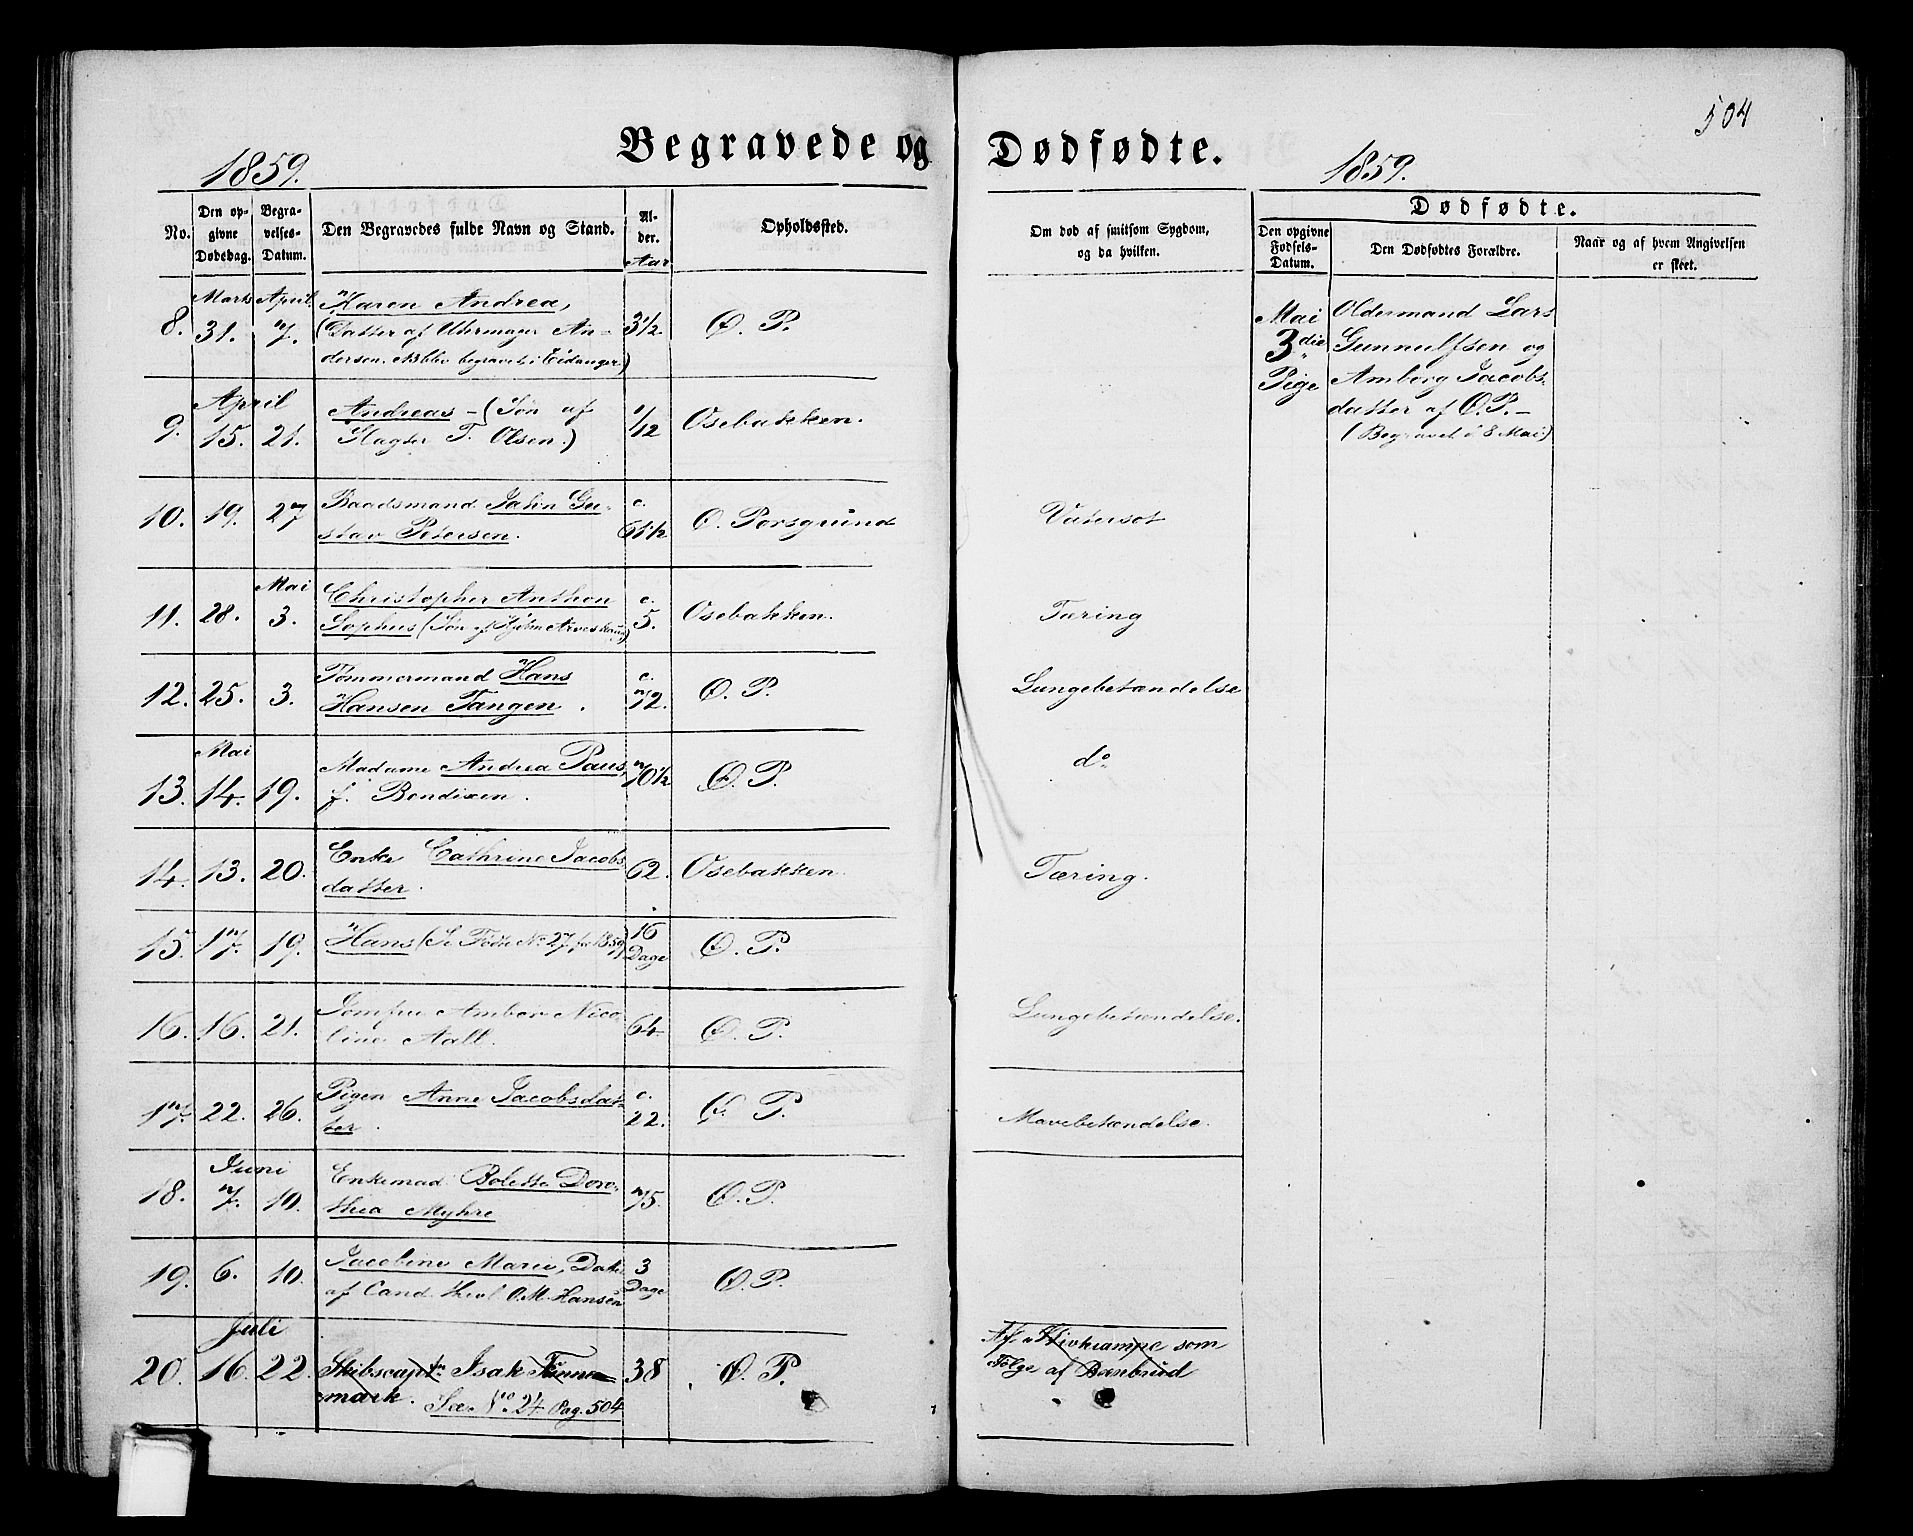 504
Begravede og Dødfødte.
1859.
1859.
No.
Den op-
givne
Dødsdag.
Begra-
velses-
Datum.
Den Begravedes fulde Navn og Stand.
Al-
der.
Aar
Opholdssted.
Om død af smitsom Sygdom,
og da hvilken.
Dødfødte.
Den opgivne
Fødsels-
Datum.
Den Dødfødtes Forældre.
Naar og af hvem Angivelsen
er skeet.
Marts April. Karen Andrea,
8. 31. 7. (Datter af Uhrmager An- 3½ Ø. P.
dersen. NB blev begravet i Eidanger)
April
9. 15. 21. Andreas - (Søn af 1/12 Osebakken.
Slagter T. Olsen.)
10. 19. 27 Baadsmand John Gu- c. Ø. Porsgrund Vatersot
stav Petersen. 61½
Mai Christopher Anthon c.
11. 28. 3. Sophus (Søn af 5. Osebakken. Tæring
12. 25. 3. Tømmermand Hans c. Ø. P. Lungebetændelse
Hansen Tangen. 72.
Mai
13. 14. 19. Madame Andrea Paus, 70½ Ø. P. do
f. Bendixen.
14. 13. 20. Enke Cathrine Jacobs 62. Osebakken. Tæring.
datter.
15. 17. 19. Hans (Se Fødte No 27 for 1859) 16 Ø. P.
Dage
16. 16. 21. Jomfru Ambor Nico- 64. Ø. P. Lungebetændelse.
line Aall.
17. 22. 26. Pigen Anne Jacobsdat- c. Ø. P. Mavebetændelse.
ter. 22.
Juni
18. 7. 10. Enkemad. Bolette Doro- 75. Ø. P.
thea Myhre
19. 6. 10. Jacobine Marie, Datt. 3 Ø. P.
af Cand. theol O. M. Hansen Dage
Juli
20. 16. 22. Skibscaptn Isak Finne 38 Ø. P. Af som
mark. See No. 24 Pag. 504 Følge af Beenbrud
Mai Oldermand Lars
3die Gunnulfsen og
Pige Amborg Jacobs
datter af Ø. P. -
(Begravet d 8 Mai)